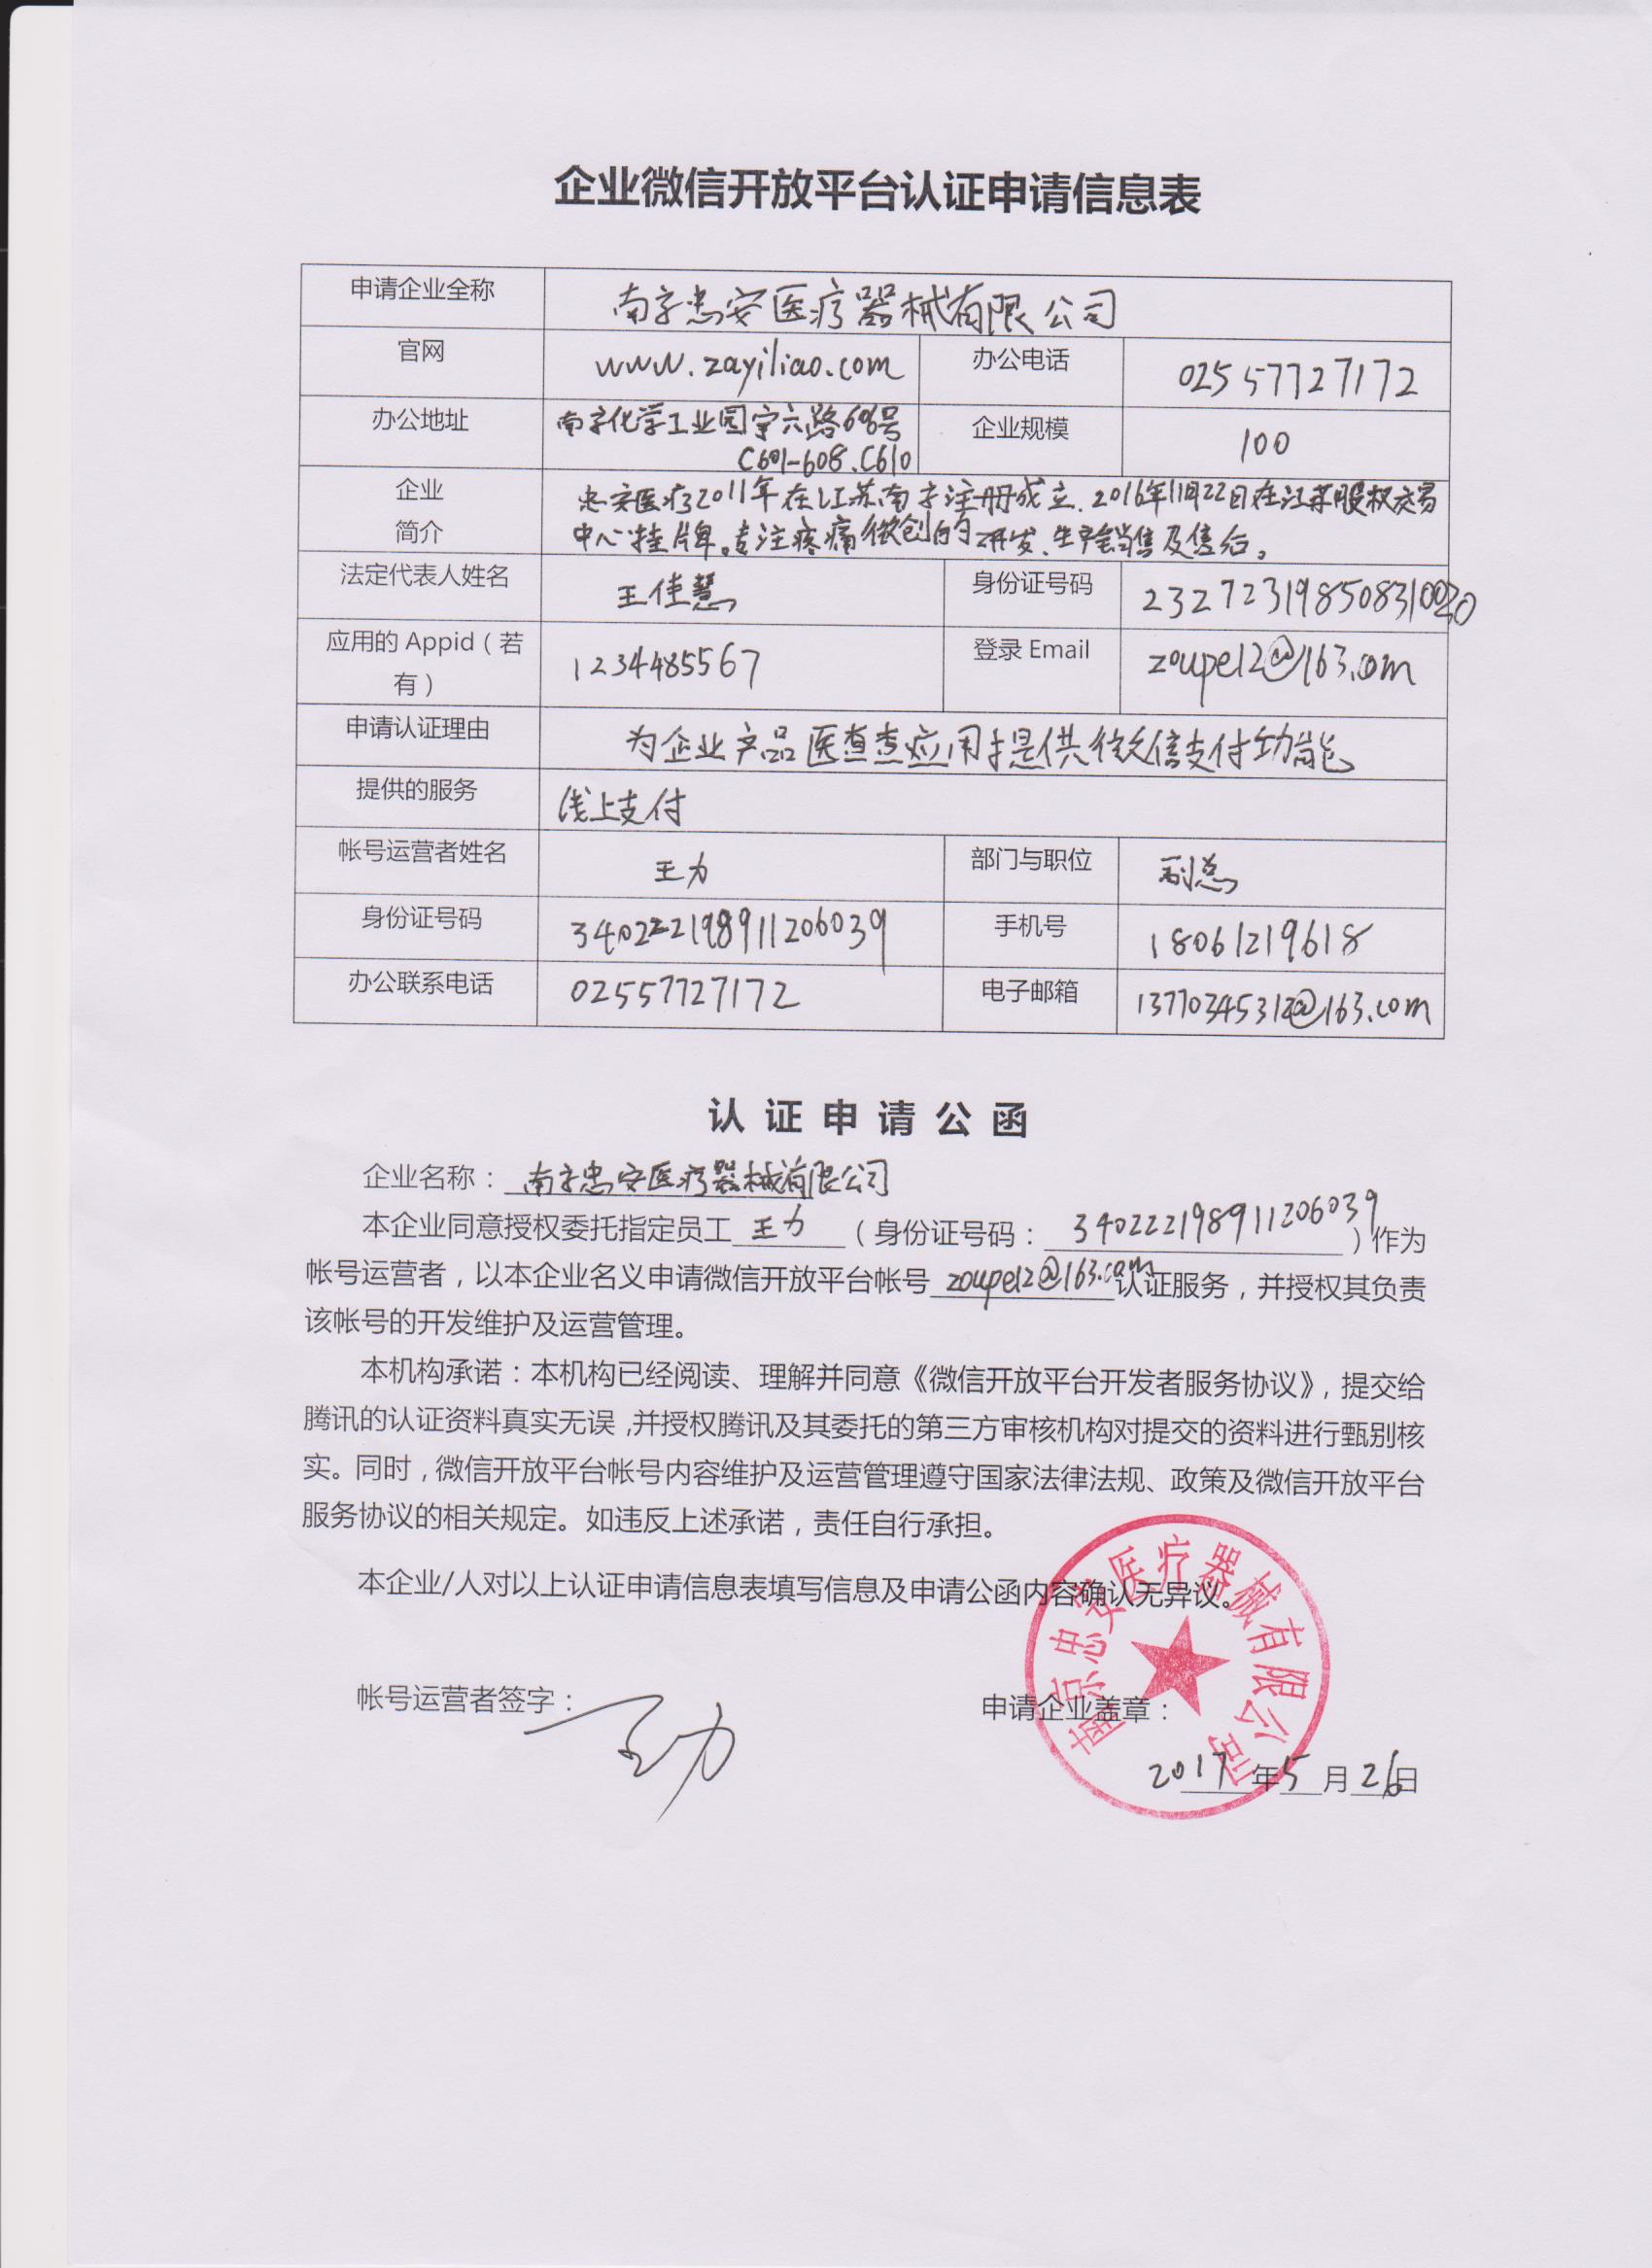 企业微信开放平台认证申请信息表
申请企业全称 南京忠安医疗器械有限公司
官网 www.zayiliao.com 办公电话 02557727172
办公地址 南京化学工业园宁六路606号
C601-608.C610 企业规模 100
企业
简介
忠安医疗2011年在江苏南京注册成立.2016年11月22日在江苏股权交易
中心挂牌。专注疼痛微创的研发、生产销售及售后。
法定代表人姓名 王佳慧 身份证号码 232723198508310020
应用的 Appid（若
有） 1234485567 登录 Email zoupe12@163.com
申请认证理由 为企业产品医查查应用提供微信支付功能
提供的服务 线上支付
帐号运营者姓名 王力 部门与职位 副总
身份证号码 340222198911206039 手机号 18061219618
办公联系电话 02557727172 电子邮箱 13770345312@163.com
认 证 申 请 公 函
企业名称：南京忠安医疗器械有限公司
本企业同意授权委托指定员工 王力 （身份证号码：340222198911206039）作为
帐号运营者，以本企业名义申请微信开放平台帐号 zoupe12@163.com 认证服务，并授权其负责
该帐号的开发维护及运营管理。
本机构承诺：本机构已经阅读、理解并同意《微信开放平台开发者服务协议》，提交给
腾讯的认证资料真实无误,并授权腾讯及其委托的第三方审核机构对提交的资料进行甄别核
实。同时，微信开放平台帐号内容维护及运营管理遵守国家法律法规、政策及微信开放平台
服务协议的相关规定。如违反上述承诺，责任自行承担。
本企业/人对以上认证申请信息表填写信息及申请公函内容确认无异议。
南京忠安医疗器械有限公司
帐号运营者签字：王力 申请企业盖章：
2017年5月26日